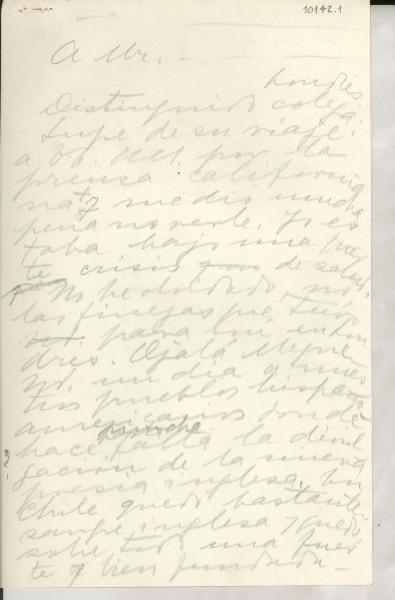 10142.1
A Mr.
Londres.
Distinguido colega:
Supe de su viaje
a EE. UU. por la
prensa california
na y me dió mucha
pena no verle. Yo es
taba bajo una fuer
te crisis de salud.
No he olvidado, no,
las finezas que tuvo
para mí en Lon
dres. Ojalá llegue
Ud. un día a nues
tros pueblos hispano
americanos donde
hace mucha falta la divul
gación de la nueva
poesía inglesa. En
Chile quedó bastante
sangre inglesa y quedó
sobre todo una fuer
te y bien fundada